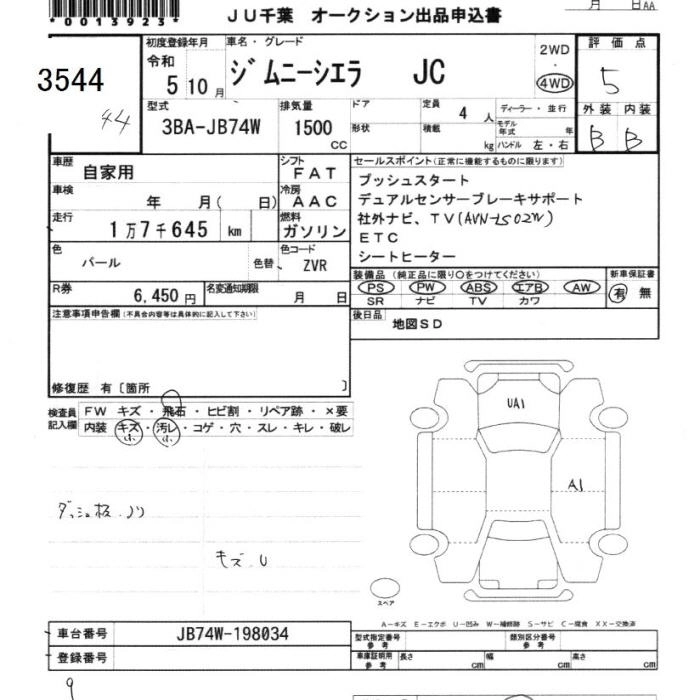 *0013923*
JU千葉 オークション出品申込書
月 日AA
3544
44
初度登録年月
令和
5 10月
車名・グレード
ジムニーシエラ JC
2WD
・
4WD
評価点
5
外装 内装
B B
型式
3BA-JB74W
排気量
1500
CC
ドア
形状
定員
4 人
積載
kg
ディーラー・並行
モデル年式 年
ハンドル 左・右
車歴
自家用
シフト
FAT
車検
年 月( 日)
冷房
AAC
走行
1万7千645 km
燃料
ガソリン
色
パール
色替
色コード
ZVR
R券
6,450円
名変通知期限
月 日
セールスポイント(正常に機能するものに限ります)
プッシュスタート
デュアルセンサーブレーキサポート
社外ナビ、TV(AVN-LS02W)
ETC
シートヒーター
装備品(純正品に限り○をつけてください)
PS PW ABS エアB AW
SR ナビ TV カワ
新車保証書
有 無
後日品
地図SD
注意事項申告欄(不具合内容等は具体的に記入して下さい)
修復歴 有〔箇所 〕
検査員記入欄
FW キズ・飛石・ヒビ割・リペア跡・×要
内装 キズ・汚レ・コゲ・穴・スレ・キレ・破レ
小 小
ダッシュ板ノリ
キズ.U
UA1
A1
スペア
A-キズ E-エクボ U-凹み W-補修跡 S-サビ C-腐食 XX-交換済
車台番号
JB74W-198034
登録番号
型式指定番号
参考
類別区分番号
参考
車庫証明用
参考
長さ cm
幅 cm
高さ cm
9